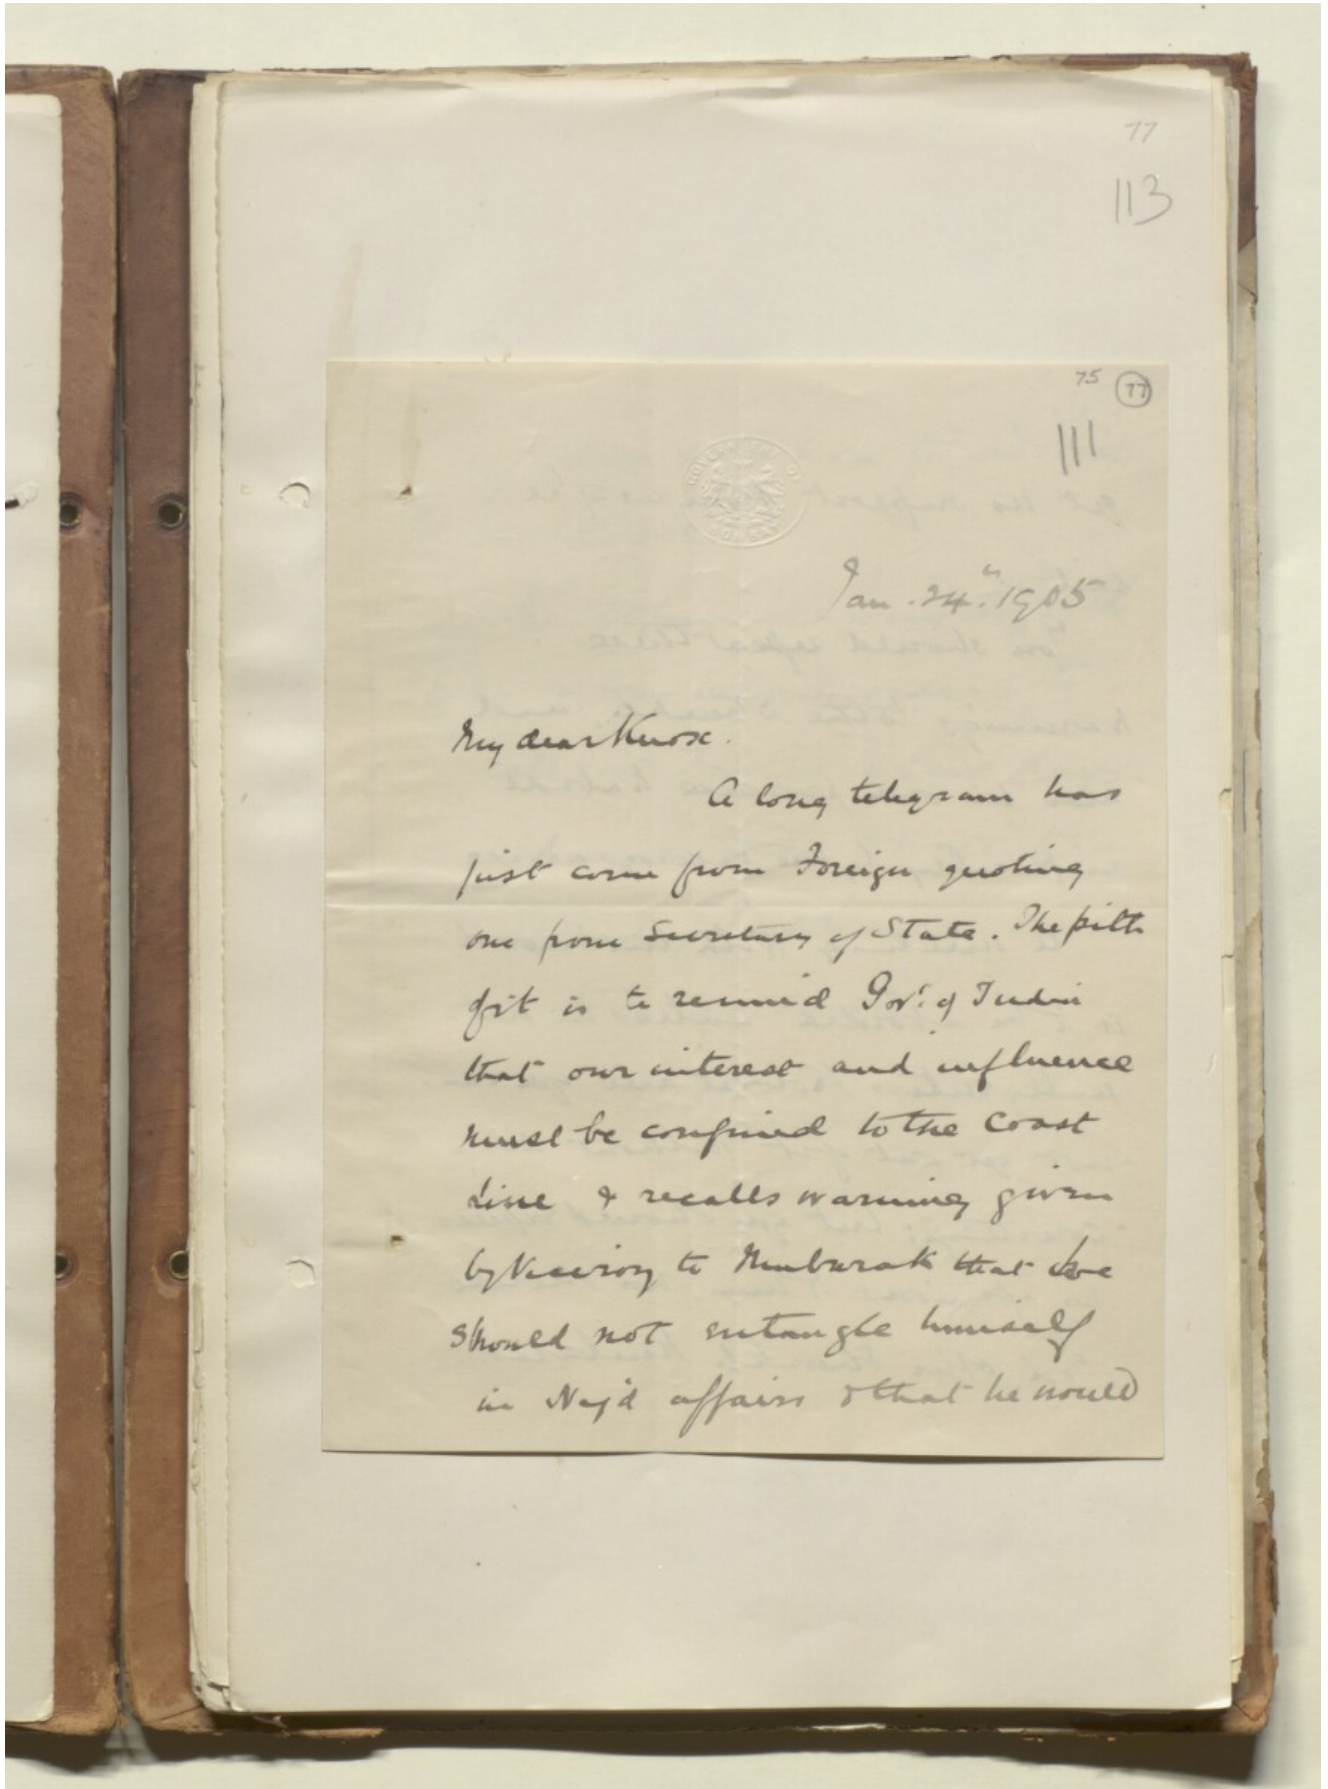 77
113
75 77
111
GOVERNMENT OF
BOMBAY
Jan. 24th. 1905
My dear Knox.
A long telegram has
just come from Foreign quoting
one from Secretary of State. The pith
of it is to remind Govt. of India
that our interest and influence
must be confined to the Coast
Line & recalls warning given
by Viceroy to Mubarak that he
should not entangle himself
in Nejd affairs & that he would